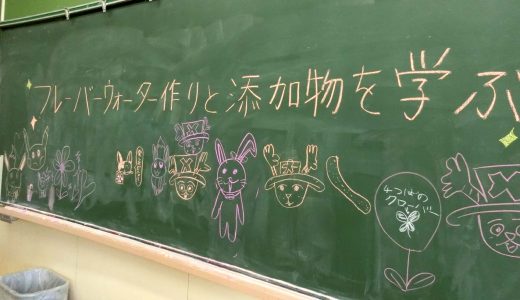 フレーバーウォーター作りと添加物を学ぶ
4つばの
クローバー